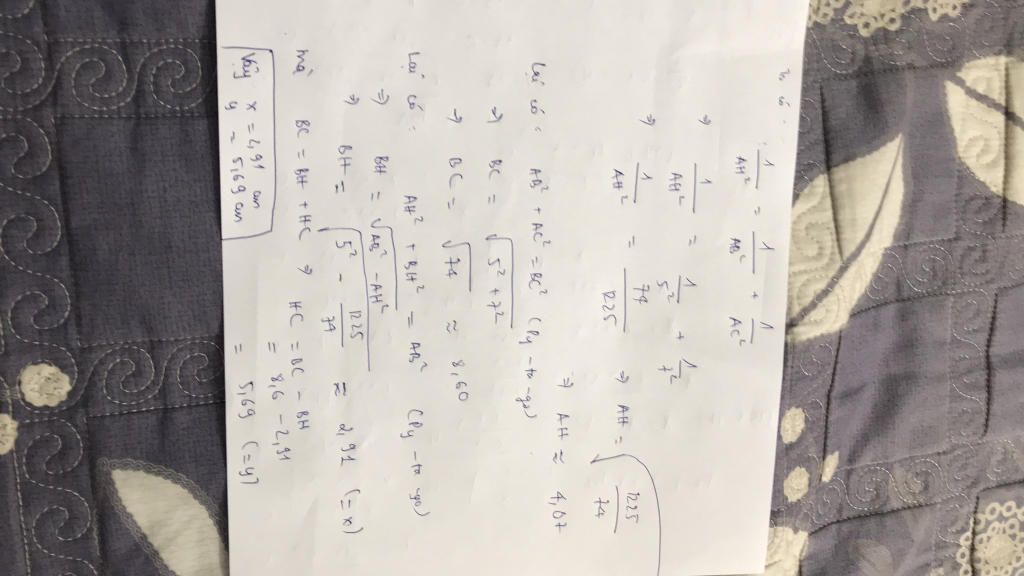 Ta có:
1/AH² = 1/AB² + 1/AC²
⇒ 1/AH² = 1/5² + 1/7²
⇒ 1/AH² = 74/1225 ⇒ AH = √(1225/74)
⇒ AH ≈ 4,07
Lại có: AB² + AC² = BC² (Py-ta-go)
⇒ BC = √(5² + 7²)
⇒ BC = √74 ≈ 8,60
Lại có: AH² + BH² = AB² (Py-ta-go)
⇒ BH = √(AB² - AH²)
⇒ BH = √(5² - 1225/74) ≈ 2,91 (= x)
mà BC = BH + HC ⇒ HC = BC - BH
= 8,6 - 2,91
= 5,69 (= y)
Vậy x = 2,91 cm
y = 5,69 cm